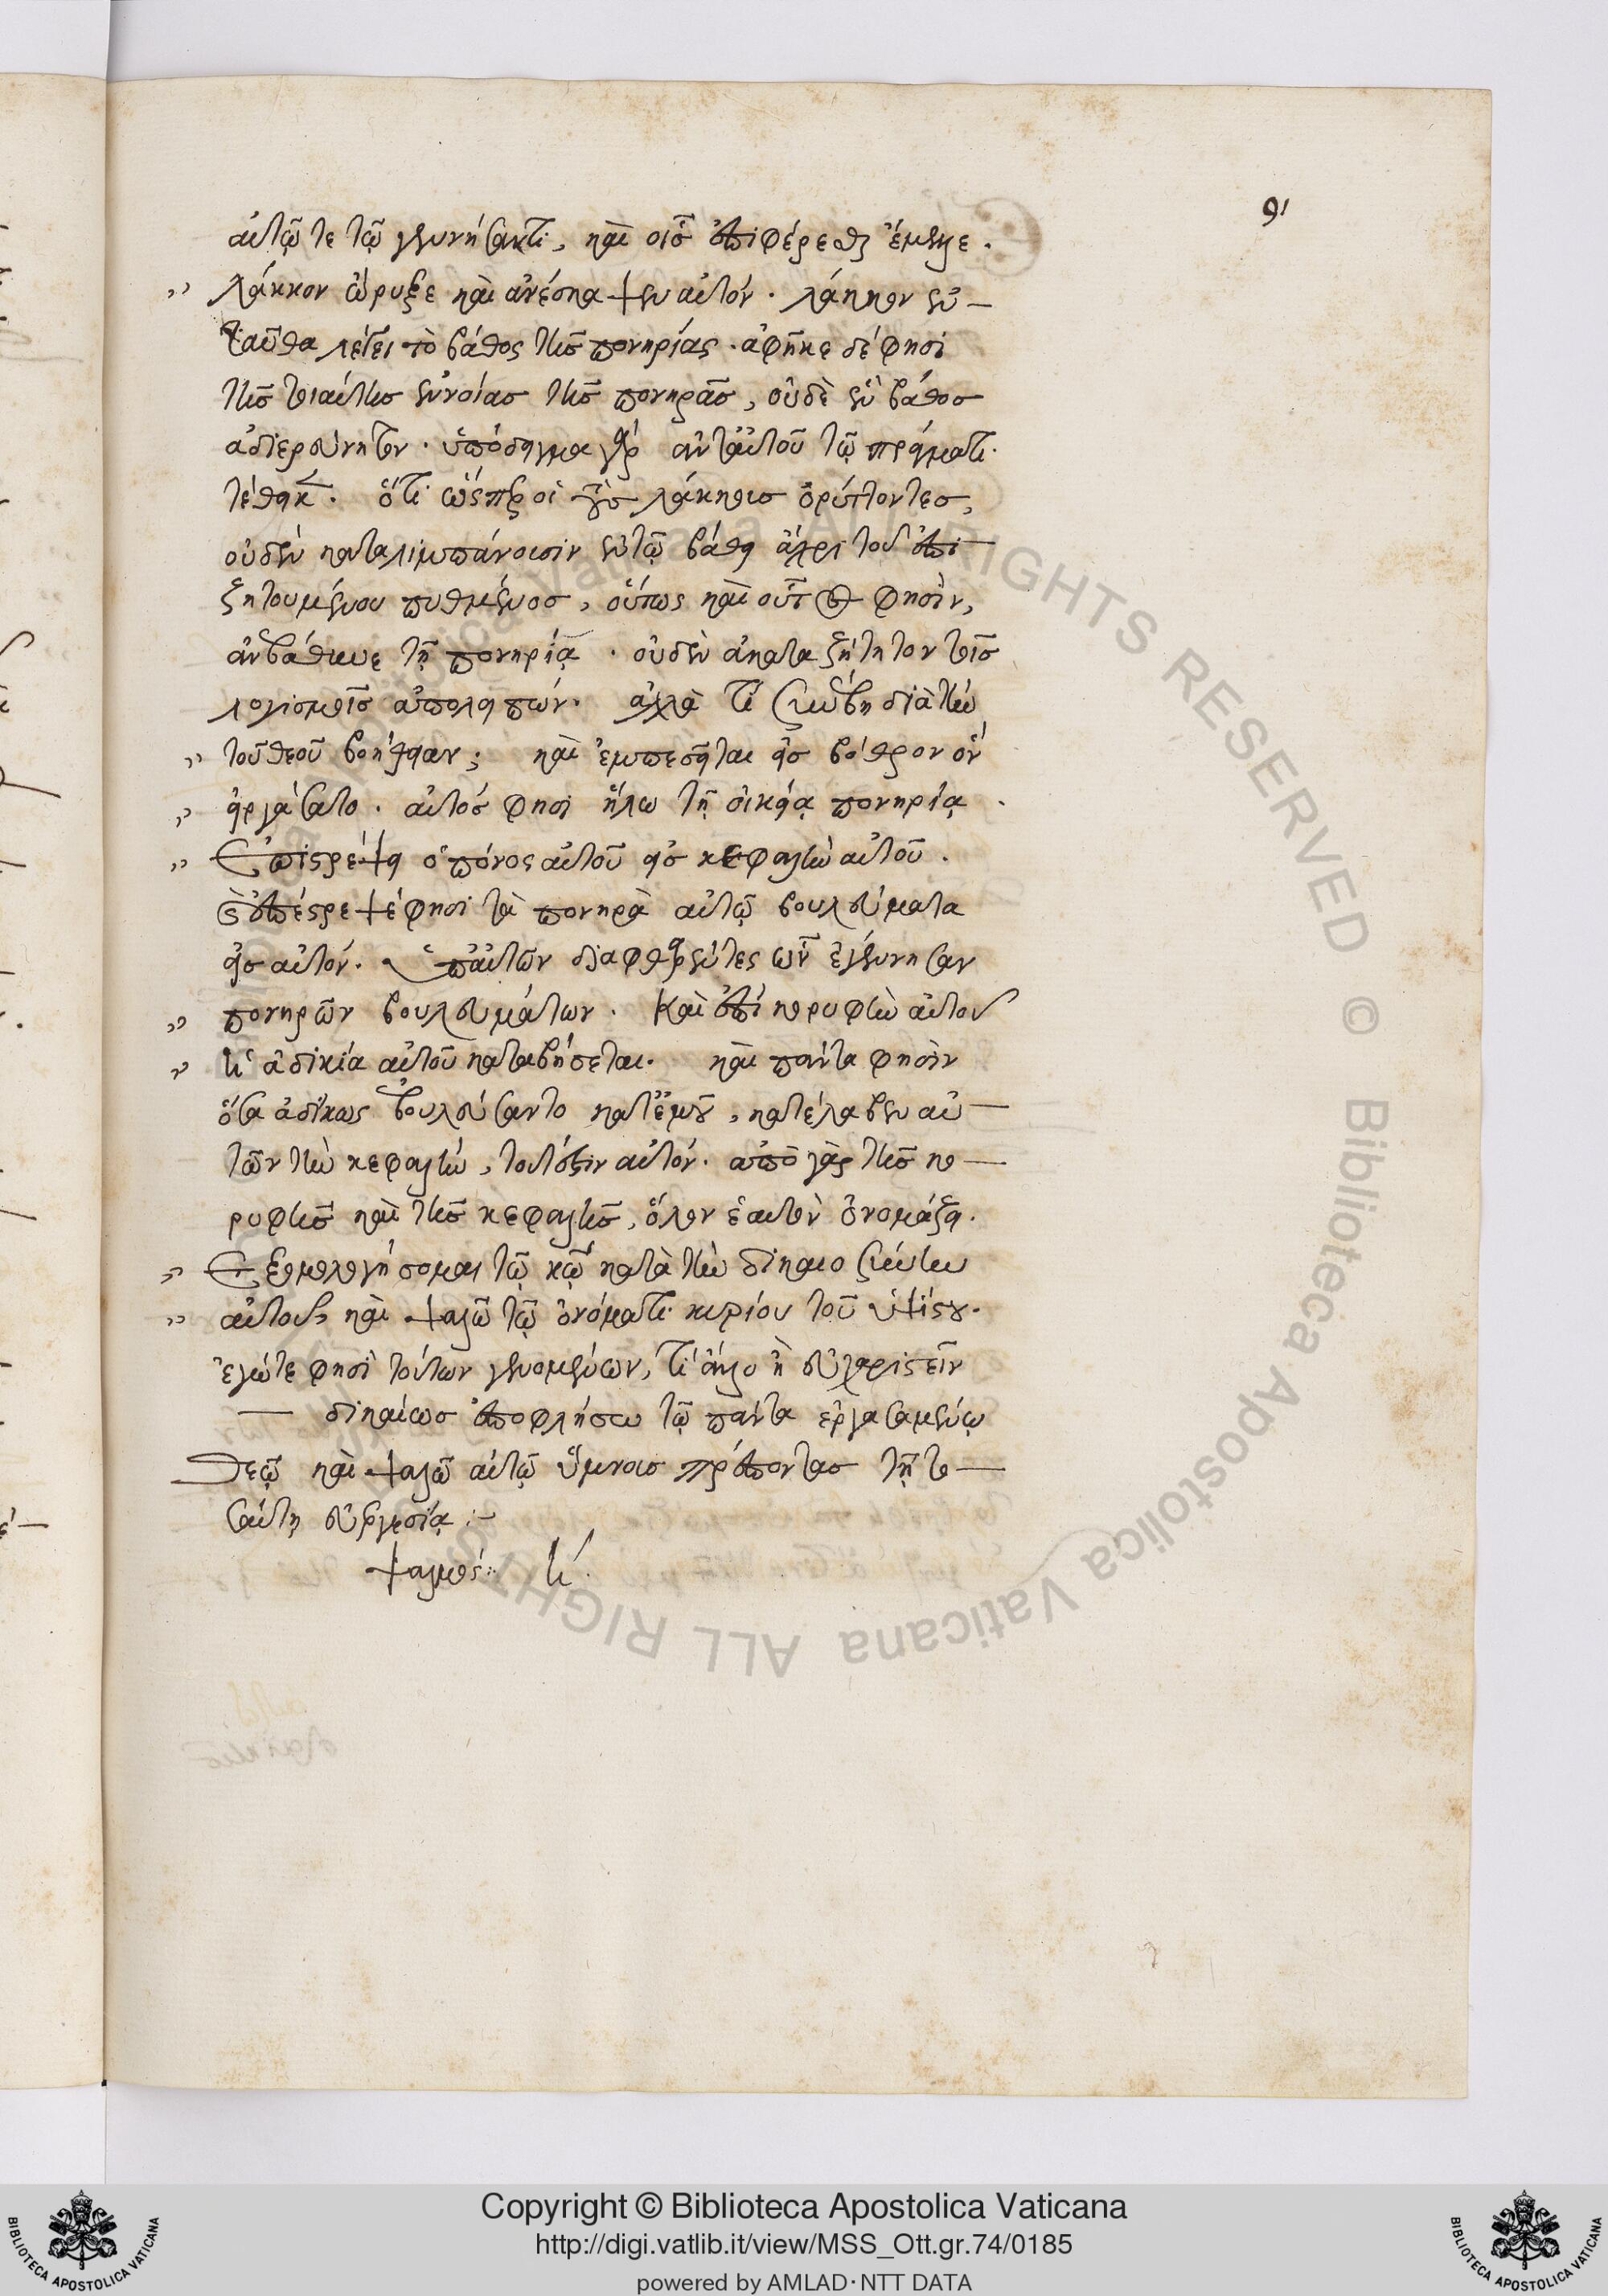 91
αὐτῷ τε τῷ γεννήσαντι, καὶ οἷς ἐπιφέρεσθαι ἔμελλε.
λάκκον ὤρυξε καὶ ἀνέσκαψεν αὐτόν. λάκκον ἐν
ταῦθα λέγει τὸ βάθος τῆς πονηρίας. ἀφῆκε δέ φησι
τῆς τοιαύτης ἐννοίας τῆς πονηρᾶς, οὐδὲ ἓν βάθος
ἀδιερεύνητον. ὑπόδειγμα γὰρ ἀντ' αὐτοῦ τῷ πράγματι
τέθεικ. ὅτι ὥσπερ οἱ τοὺς λάκκους ὀρύττοντες,
οὐδὲν καταλιμπάνουσιν ἐν τῷ βάθει ἄχρι τοῦ ἐπι
ζητουμένου πυθμένος, οὕτως καὶ οὗτος φησὶν,
ἀνβάθυνε τῇ πονηρίᾳ. οὐδὲν ἀκαταζήτητον τοῖς
λογισμοῖς ἀπολειπών. ἀλλὰ τί συνέβη διὰ τὴν
τοῦ θεοῦ βοήθειαν; καὶ ἐμπεσεῖται εἰς βόθρον ὃν
εἰργάσατο. αὐτός φησι ἥλω τῇ οἰκείᾳ πονηρίᾳ.
Ἐπιστρέψει ὁ πόνος αὐτοῦ εἰς κεφαλὴν αὐτοῦ.
ἐπέστρεψέ φησι τὰ πονηρὰ αὐτῷ βουλεύματα
εἰς αὐτόν. ὑπ' αὐτῶν διαφθαρέντες ὧν ἐγέννησαν
πονηρῶν βουλευμάτων. Καὶ ἐπὶ κορυφὴν αὐτοῦ
ἡ ἀδικία αὐτοῦ καταβήσεται. καὶ πάντα φησὶν
ὅσα ἀδίκως βουλεύσαντο κατ' ἐμοῦ, κατέλαβεν αὐ
τῶν τὴν κεφαλήν, τουτέστιν αὐτόν. ἀπὸ γὰρ τῆς κο
ρυφῆς καὶ τῆς κεφαλῆς, ὅλον ἑαυτὸν ὀνομάζει.
Ἐξομολογήσομαι τῷ κῷ κατὰ τὴν δικαιοσύνην
αὐτοῦ καὶ ψαλῶ τῷ ὀνόματι κυρίου τοῦ ὑψίστου.
ἐγώ τε φησὶ τούτων γενομένων, τί ἄλλο ἢ εὐχαριστεῖν
δικαίως ἀποφλήσω τῷ πάντα ἐργασαμένῳ
Θεῷ καὶ ψαλῶ αὐτῷ ὕμνους πρέποντας τῇ το
σαύτῃ εὐεργεσίᾳ:-
ψαλμός: η.
Copyright © Biblioteca Apostolica Vaticana
http://digi.vatlib.it/view/MSS_Ott.gr.74/0185
powered by AMLAD·NTT DATA